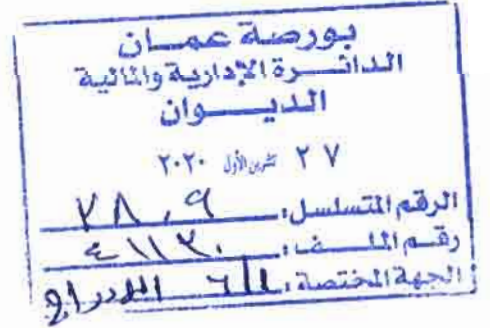 بورصة عمان
الدائرة الإدارية والمالية
الديوان
٢٧ تشرين الأول ٢٠٢٠
الرقم المتسلسل:
رقم الملف: ٤١١٢٠
الجهة المختصة: